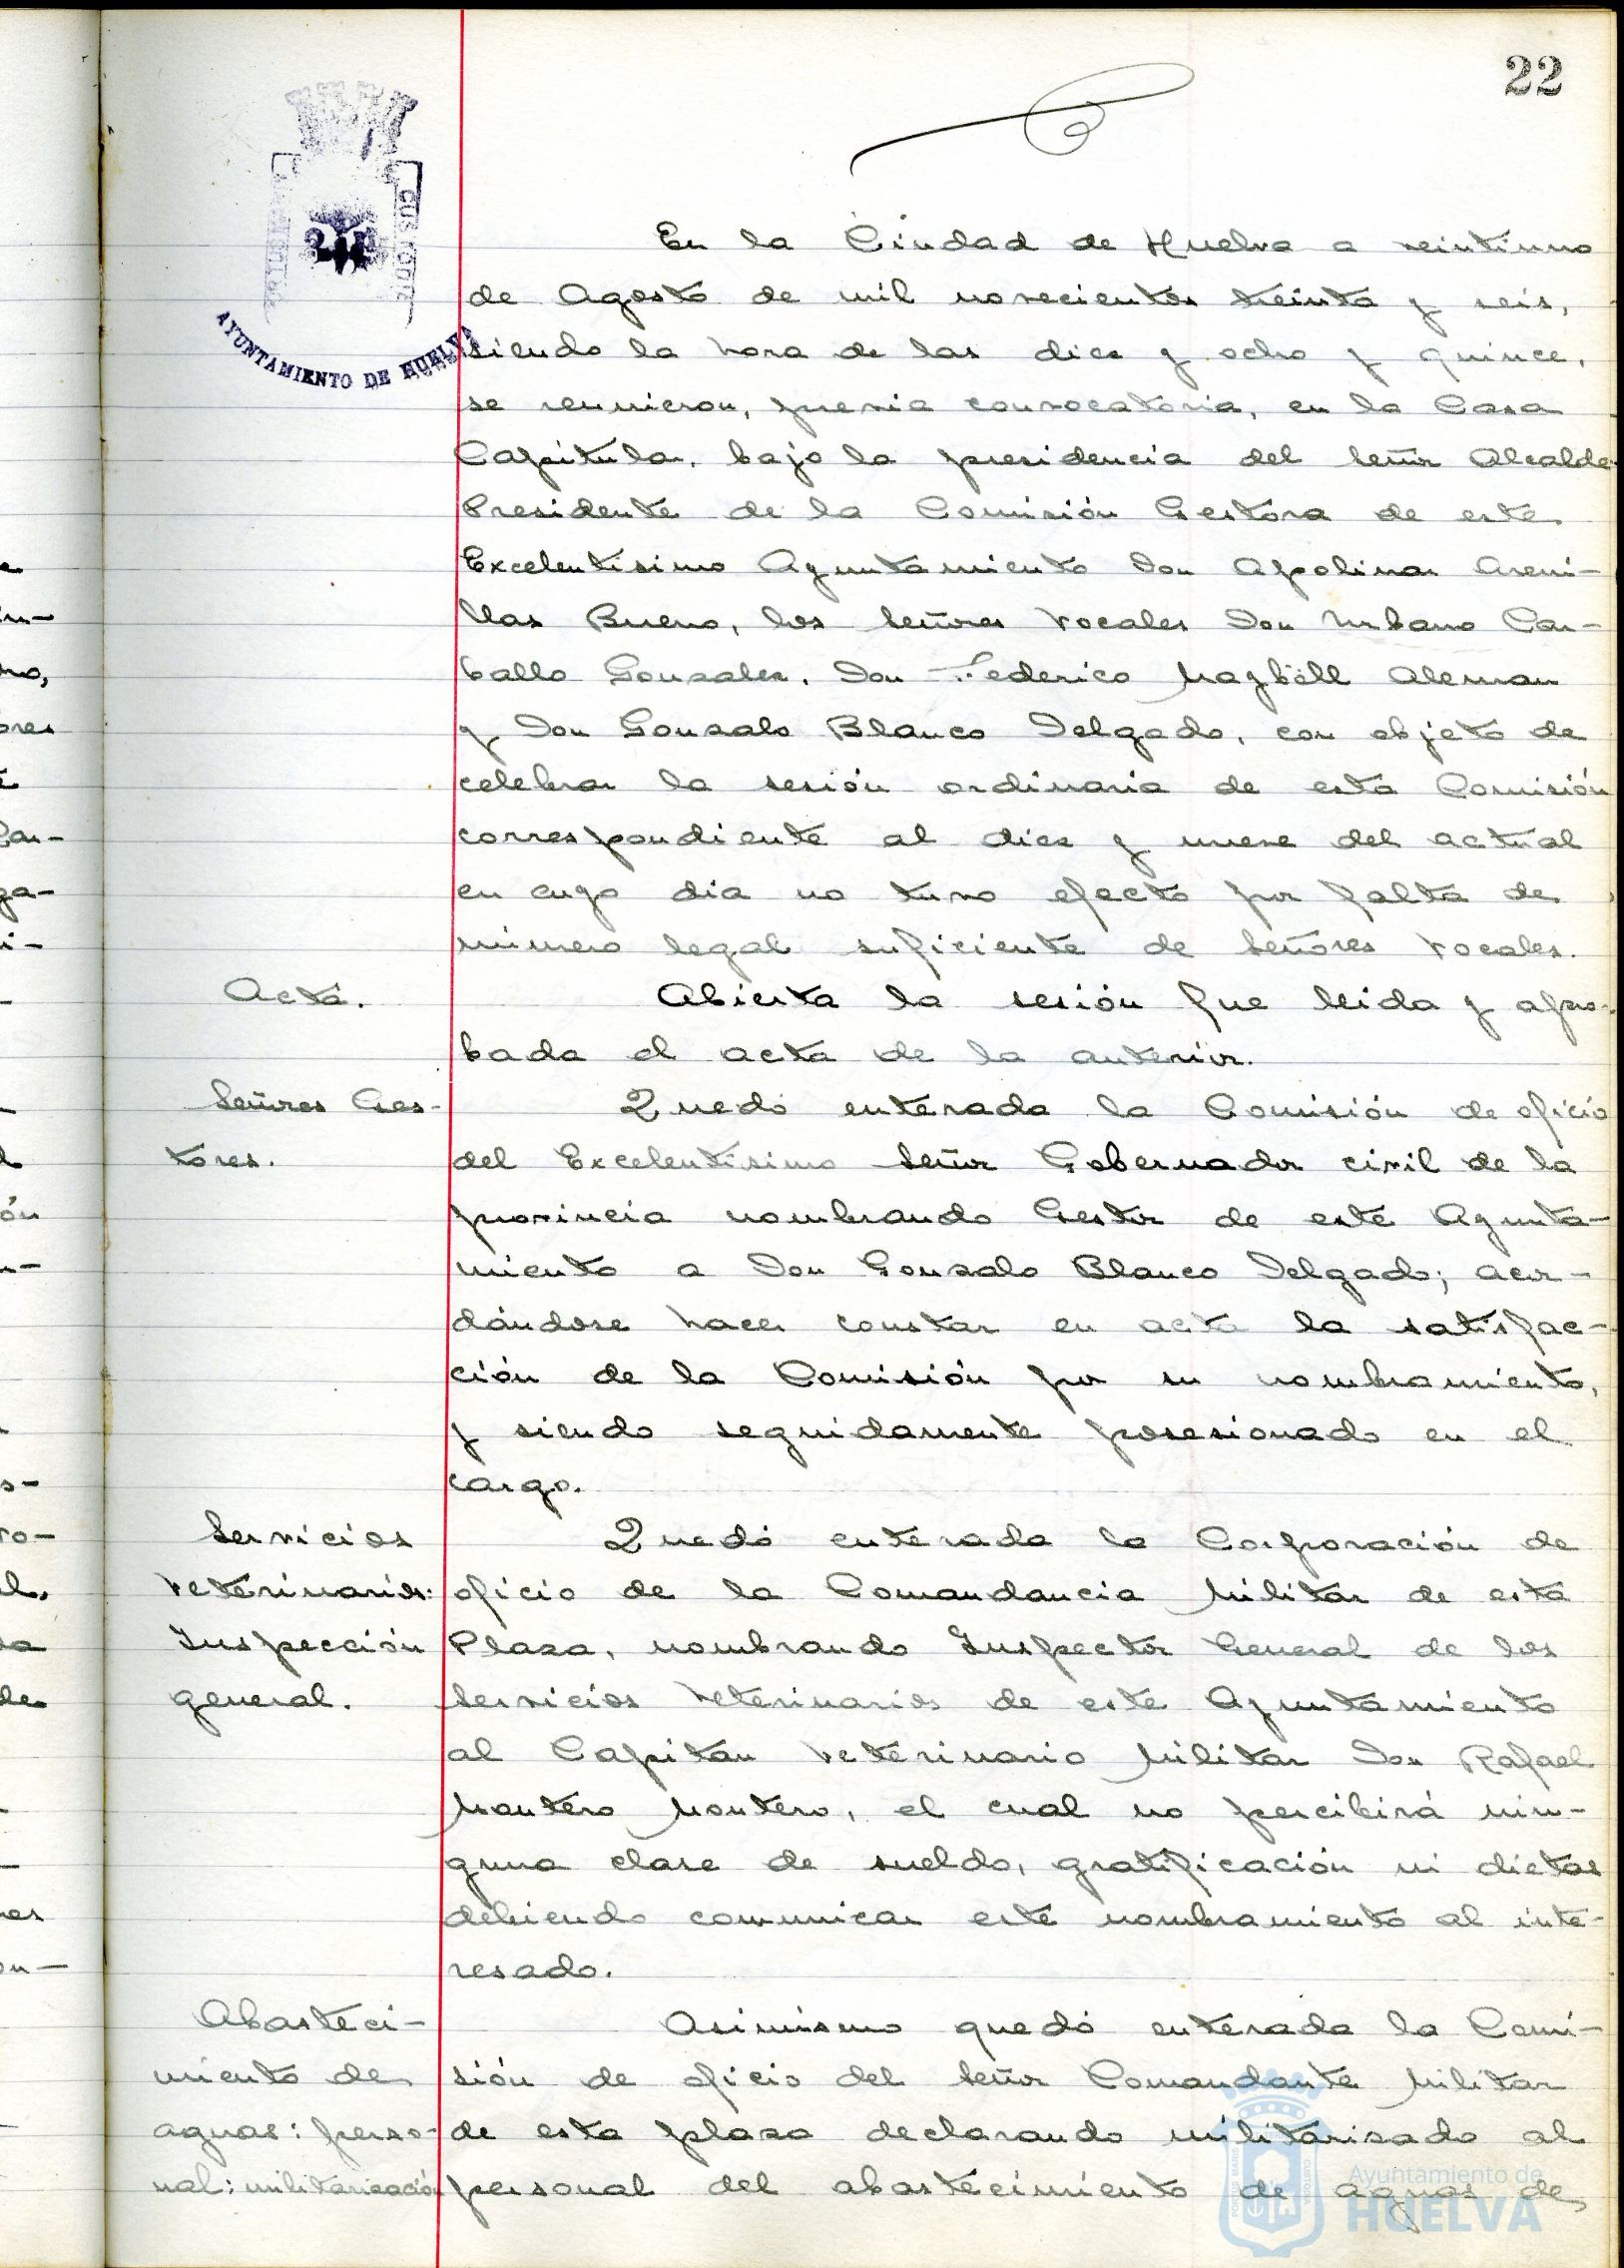 22
AYUNTAMIENTO DE HUELVA
En la Ciudad de Huelva a veintiuno
de Agosto de mil novecientos treinta y seis,
siendo la hora de las diez y ocho y quince,
se reunieron, previa convocatoria, en la Casa
Capitular, bajo la presidencia del Señor Alcalde
Presidente de la Comisión Gestora de este
Excelentísimo Ayuntamiento Don Apolinar Areni-
llas Bueno, los Señores Vocales Don Urbano Car-
ballo Gonzalez, Don Federico Maybóll Aleman
y Don Gonzalo Blanco Delgado, con objeto de
celebrar la sesión ordinaria de esta Comisión
correspondiente al diez y nueve del actual
en cuyo dia no tuvo efecto por falta de
número legal suficiente de Señores Vocales.
Acta.
Abierta la sesión fue leida y apro-
bada el acta de la anterior.
Señores Ges-
tores.
Quedó enterada la Comisión de oficio
del Excelentísimo Señor Gobernador civil de la
provincia nombrando Gestor de este Ayunta-
miento a Don Gonzalo Blanco Delgado; acor-
dándose hacer constar en acta la satisfac-
ción de la Comisión por su nombramiento,
y siendo seguidamente posesionado en el
cargo.
Servicios
Veterinarios:
Inspección
general.
Quedó enterada la Corporación de
oficio de la Comandancia Militar de esta
Plaza, nombrando Inspector General de los
Servicios Veterinarios de este Ayuntamiento
al Capitan Veterinario Militar Don Rafael
Montero Montero, el cual no percibirá nin-
guna clase de sueldo, gratificación ni dietas
debiendo comunicar este nombramiento al inte-
resado.
Abasteci-
miento de
aguas: perso-
nal: militarización
Asimismo quedó enterada la Comi-
sión de oficio del Señor Comandante Militar
de esta plaza declarando militarizado al
personal del abastecimiento de aguas de
Ayuntamiento de
HUELVA